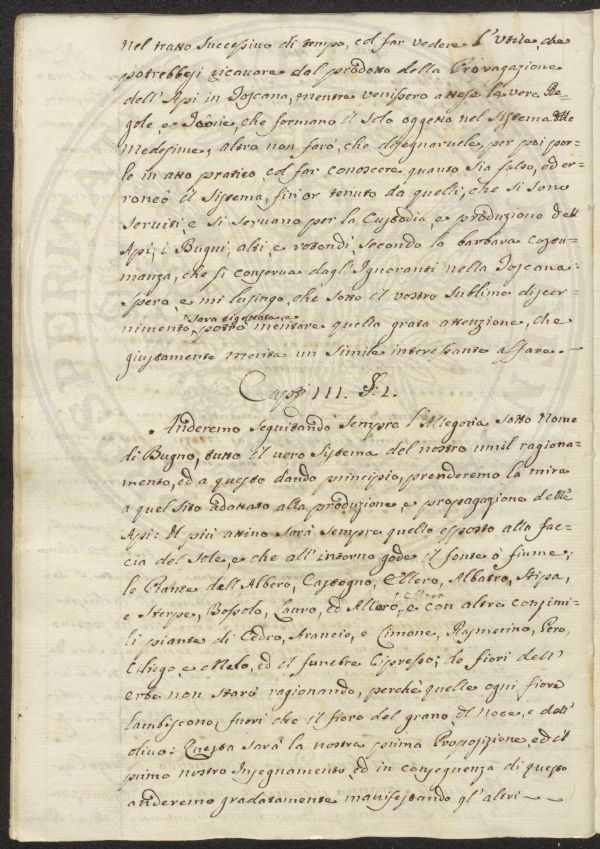 nel tratto successivo di tempo, col far vedere l'Utile, che
potrebbesi ricavare dal prodotto della Provagazione
dell'Api in Toscana, mentre venissero attese le vere Re-
gole, e Teorie, che formano il solo oggetto nel Sistema delle
Medesime, altro non farò, che disegnarvele, per poi por-
le in atto pratico, col far conoscere quanto sia falso, ed er-
roneo il Sistema, fin'or tenuto da quelli, che si sono
serviti, e si servano per la Custodia, e produzione dell'
Api, i Bugni, alti, e rotondi, secondo la barbara costu-
manza, che si conserva dagl'Ignoranti nella Toscana:
Spero, e mi lusingo, che sotto il vostro sublime discer-
sarà
nimento, potrò meritare quella grata attenzione, che
giustamente merita un simile interessante affare. -
Capo III. §. 1.
Anderemo seguitando sempre l'Allegoria sotto nome
di Bugno, tutto il vero Sistema del nostro umil ragiona-
mento, ed a questo dando principio, prenderemo la mira
a quel sito adattato alla produzione, e propagazione dell'
Api: Il più attivo sarà sempre quello esposto alla fac-
cia del Sole, e che all'intorno gode il fonte o fiume;
le Piante dell'Albero, Castagno, Ellero, Albatro, Stipa,
e Sterpe, Bossolo, Lauro, ed Alloro, e con altre consimi-
li piante di Cedro, Arancio, e Limone, Ramerino, Pero,
Ciliego, e Melo, ed il funebre Cipresso; de fiori dell'
erbe non starò ragionando, perchè quelle ogni fiore
lambiscono, fuori che il fiore del grano, del Noce, e dell'
olivo: Questa sarà la nostra prima Proposizione, ed il
primo nostro Insegnamento, ed in conseguenza di questo
anderemo gradatamente manifestando gl'altri -